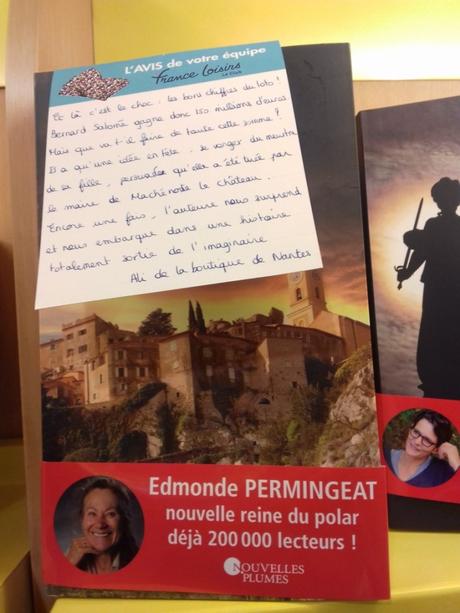 L'AVIS de votre équipe
France Loisirs
LE CLUB
Et là c'est le choc : les bons chiffres du loto !
Bernard Salomé gagne donc 150 millions d'euros.
Mais que va t-il faire de toute cette somme ?
Il a qu'une idée en tête, se venger du meurtre
de sa fille, persuadé qu'elle a été tuée par
le maire de Machênoste le Château.
Encore une fois, l'auteure nous surprend
et nous embarque dans une histoire
totalement sortie de l'imaginaire
Ali de la boutique de Nantes
Edmonde PERMINGEAT
nouvelle reine du polar
déjà 200 000 lecteurs !
NOUVELLES
PLUMES